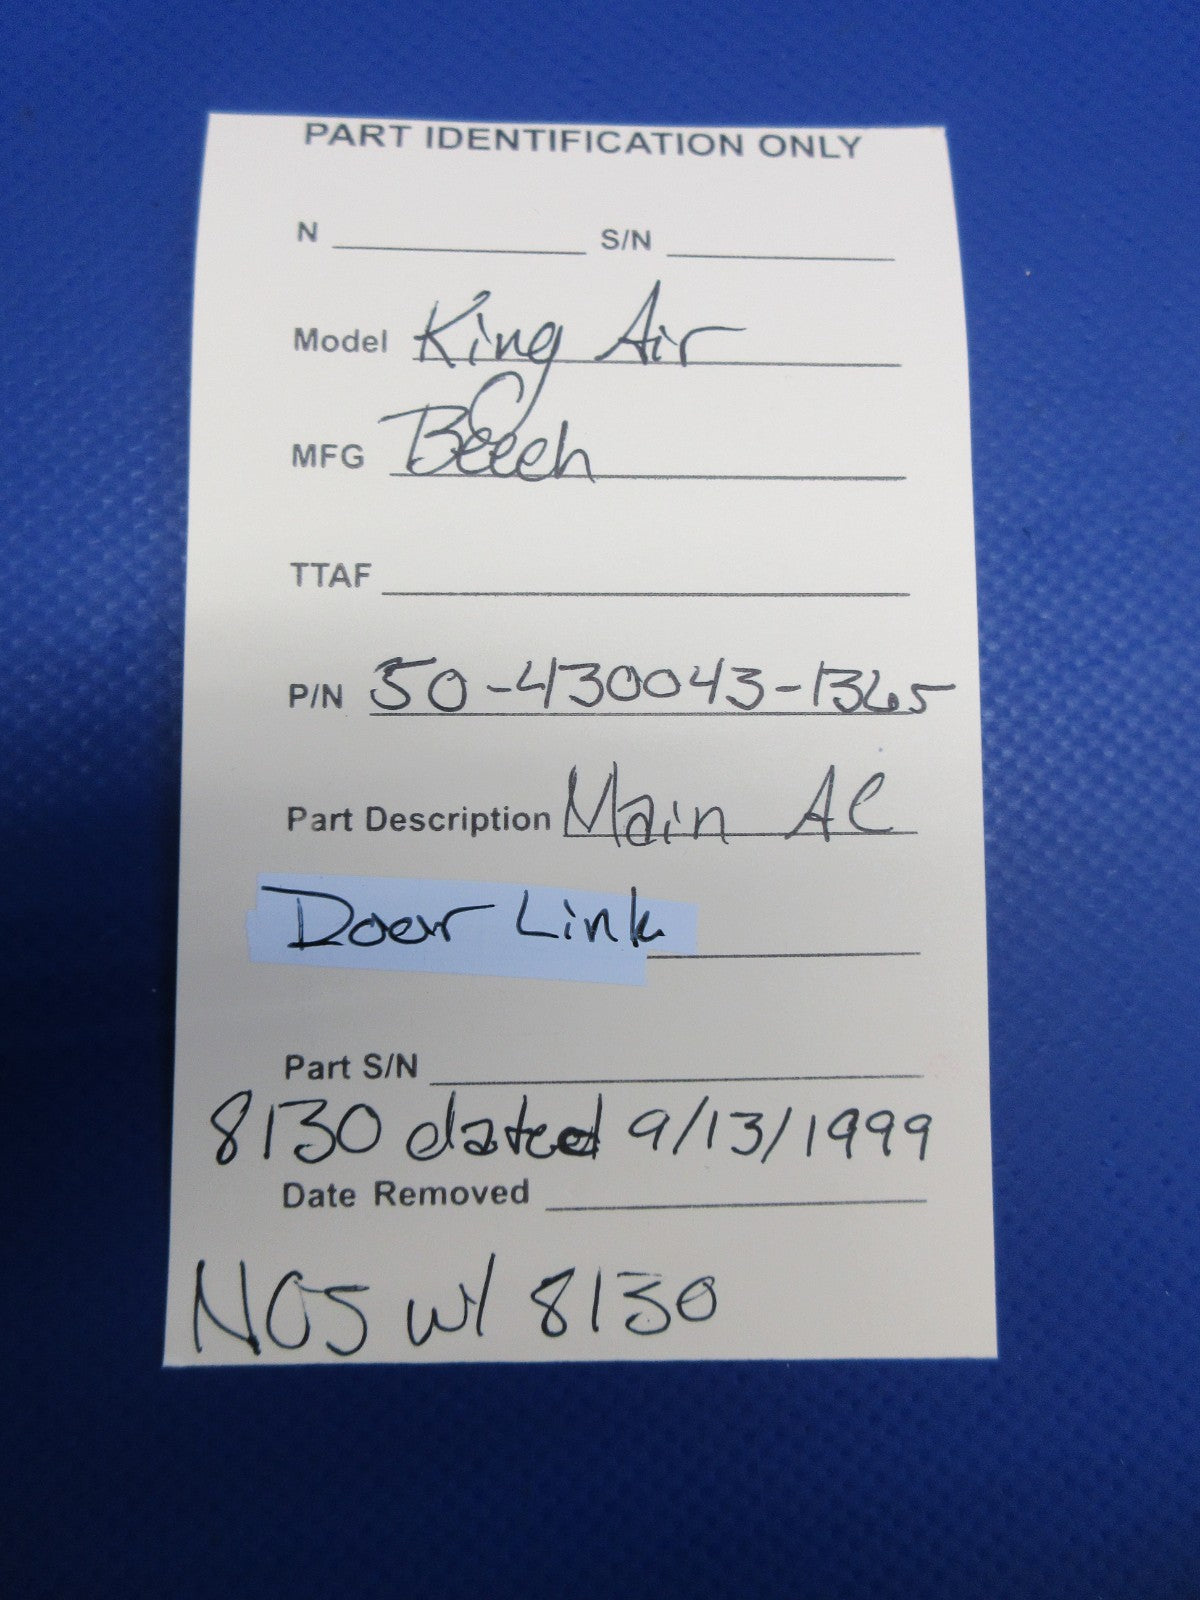 PART IDENTIFICATION ONLY
N S/N
Model King Air
MFG Beech
TTAF
P/N 50-430043-1365
Part Description Main AC
Door Link
Part S/N
8130 dated 9/13/1999
Date Removed
NOS w/ 8130